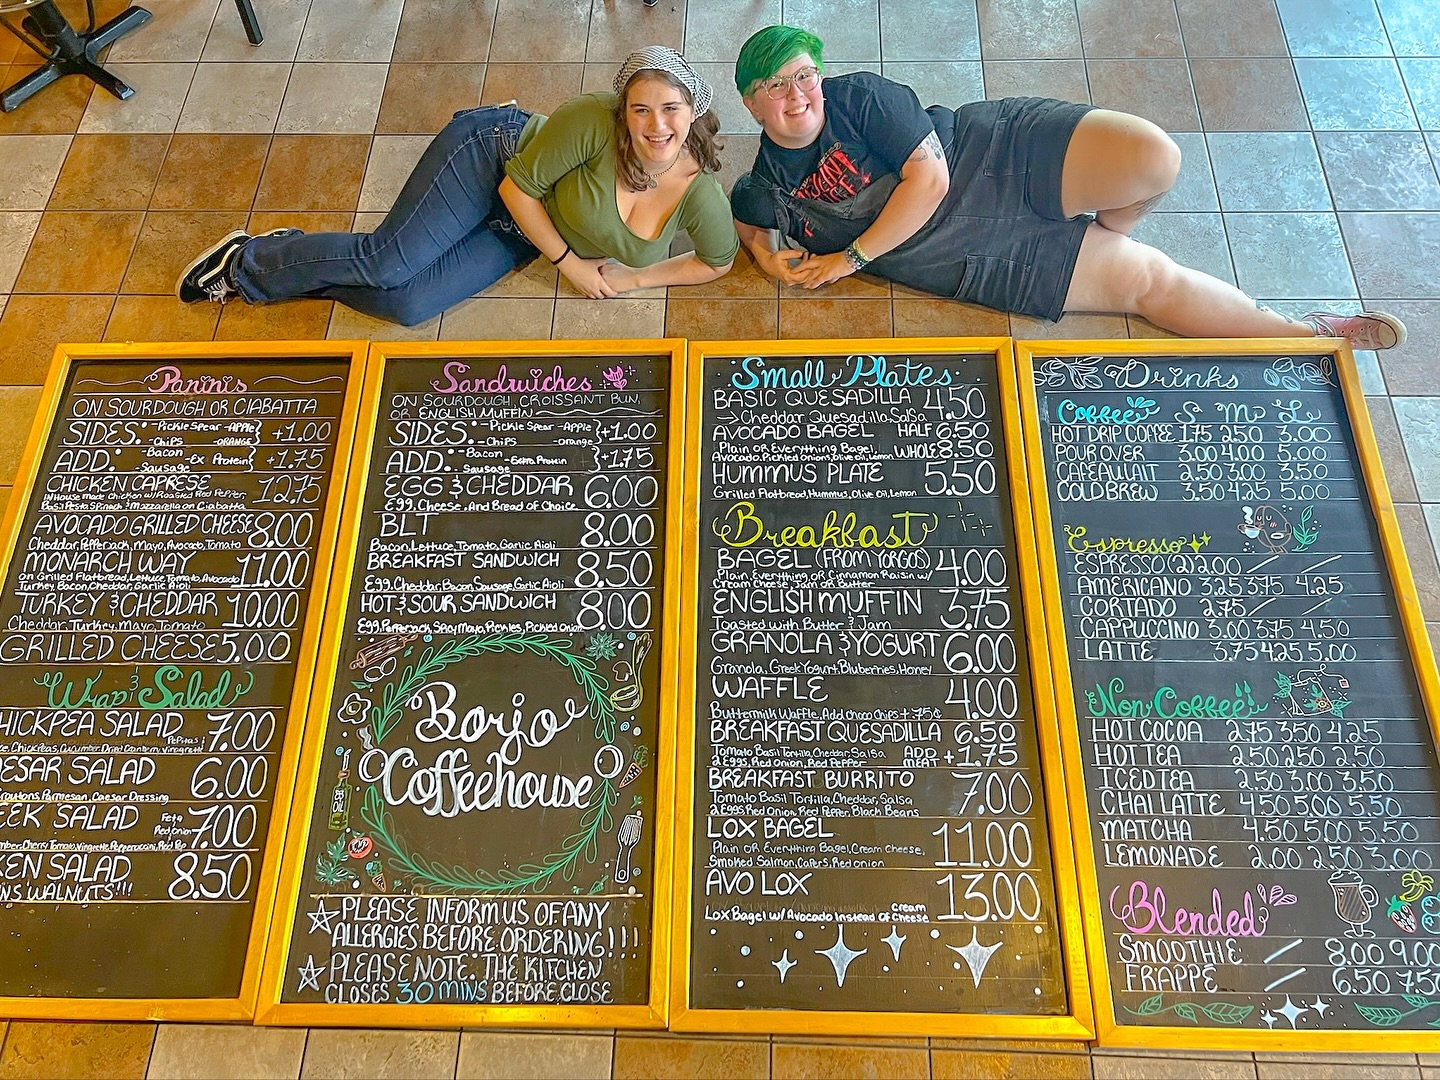 Paninis
ON SOURDOUGH OR CIABATTA
SIDES: -Pickle Spear -Apple
-Chips -orange +1.00
ADD: -Bacon
-Sausage -Ex Protein +1.75
CHICKEN CAPRESE 12.75
In House made Chicken w/Roasted Red Pepper,
Basil Pesto, Spinach & Mozzarella on Ciabatta
AVOCADO GRILLED CHEESE 8.00
Cheddar, Pepperjack, Mayo, Avocado, Tomato
MONARCH WAY 11.00
on Grilled Flatbread, Lettuce, Tomato, Avocado
Turkey, Bacon, Cheddar, Garlic Aioli
TURKEY & CHEDDAR 10.00
Cheddar, Turkey, Mayo, Tomato
GRILLED CHEESE 5.00
Wrap & Salad
HICKPEA SALAD 7.00
Pepitas
Chickpeas, Cucumber, Dried Cranberry, Vinaigrette
ESAR SALAD 6.00
routons, Parmesan, Caesar Dressing
EEK SALAD Feta 7.00
Red Onion
mber, Cherry Tomato, Vingrette, Pepperoncini, Red Pep
KEN SALAD 8.50
NS WALNUTS!!!
Sandwiches
ON SOURDOUGH, CROISSANT BUN,
OR ENGLISH MUFFIN
SIDES: -Pickle Spear -Apple
-Chips -orange +1.00
ADD: -Bacon
-Sausage -Extra Protein +1.75
EGG & CHEDDAR 6.00
Egg, Cheese, And Bread of Choice
BLT 8.00
Bacon, Lettuce, Tomato, Garlic Aioli
BREAKFAST SANDWICH 8.50
Egg, Cheddar, Bacon, Sausage, Garlic Aioli
HOT & SOUR SANDWICH 8.00
Egg, Pepperjack, Spicy Mayo, Pickles, Pickled Onion
OIL
Borjo
Coffeehouse
PLEASE INFORM US OF ANY
ALLERGIES BEFORE ORDERING!!!
PLEASE NOTE: THE KITCHEN
CLOSES 30 MINS BEFORE CLOSE
Small Plates
BASIC QUESADILLA 4.50
→Cheddar Quesadilla, Salsa
AVOCADO BAGEL HALF 6.50
Plain or Everything Bagel, WHOLE 8.50
Avocado, Pickled Onions, Olive oil, Lemon
HUMMUS PLATE 5.50
Grilled Flatbread, Hummus, Olive Oil, Lemon
Breakfast
BAGEL (FROM YORGOS) 4.00
Plain, Everything or Cinnamon Raisin w/
Cream Cheese, Jam or Butter
ENGLISH MUFFIN 3.75
Toasted with Butter & Jam
GRANOLA & YOGURT 6.00
Granola, Greek Yogurt, Bluberries, Honey
WAFFLE 4.00
Buttermilk Waffle, Add choco Chips +.75¢
BREAKFAST QUESADILLA 6.50
Tomato Basil Tortilla, Cheddar, Salsa ADD
2 Eggs, Red Onion, Red Pepper MEAT +1.75
BREAKFAST BURRITO 7.00
Tomato Basil Tortilla, Cheddar, Salsa
2 Eggs, Red Onion, Red Pepper, Black Beans
LOX BAGEL 11.00
Plain or Everything Bagel, Cream Cheese,
Smoked Salmon, Capers, Red Onion
AVO LOX 13.00
Lox Bagel w/ Avocado Instead of Cream Cheese
Drinks
Coffee S M L
HOT DRIP COFFEE 1.75 2.50 3.00
POUR OVER 3.00 4.00 5.00
CAFE AU LAIT 2.50 3.00 3.50
COLD BREW 3.50 4.25 5.00
Espresso
ESPRESSO (2) 2.00 / /
AMERICANO 3.25 3.75 4.25
CORTADO 2.75 / /
CAPPUCCINO 3.00 3.75 4.50
LATTE 3.75 4.25 5.00
Non Coffee
HOT COCOA 2.75 3.50 4.25
HOT TEA 2.50 2.50 2.50
ICED TEA 2.50 3.00 3.50
CHAI LATTE 4.50 5.00 5.50
MATCHA 4.50 5.00 5.50
LEMONADE 2.00 2.50 3.00
Blended
SMOOTHIE / 8.00 9.00
FRAPPE / 6.50 7.50